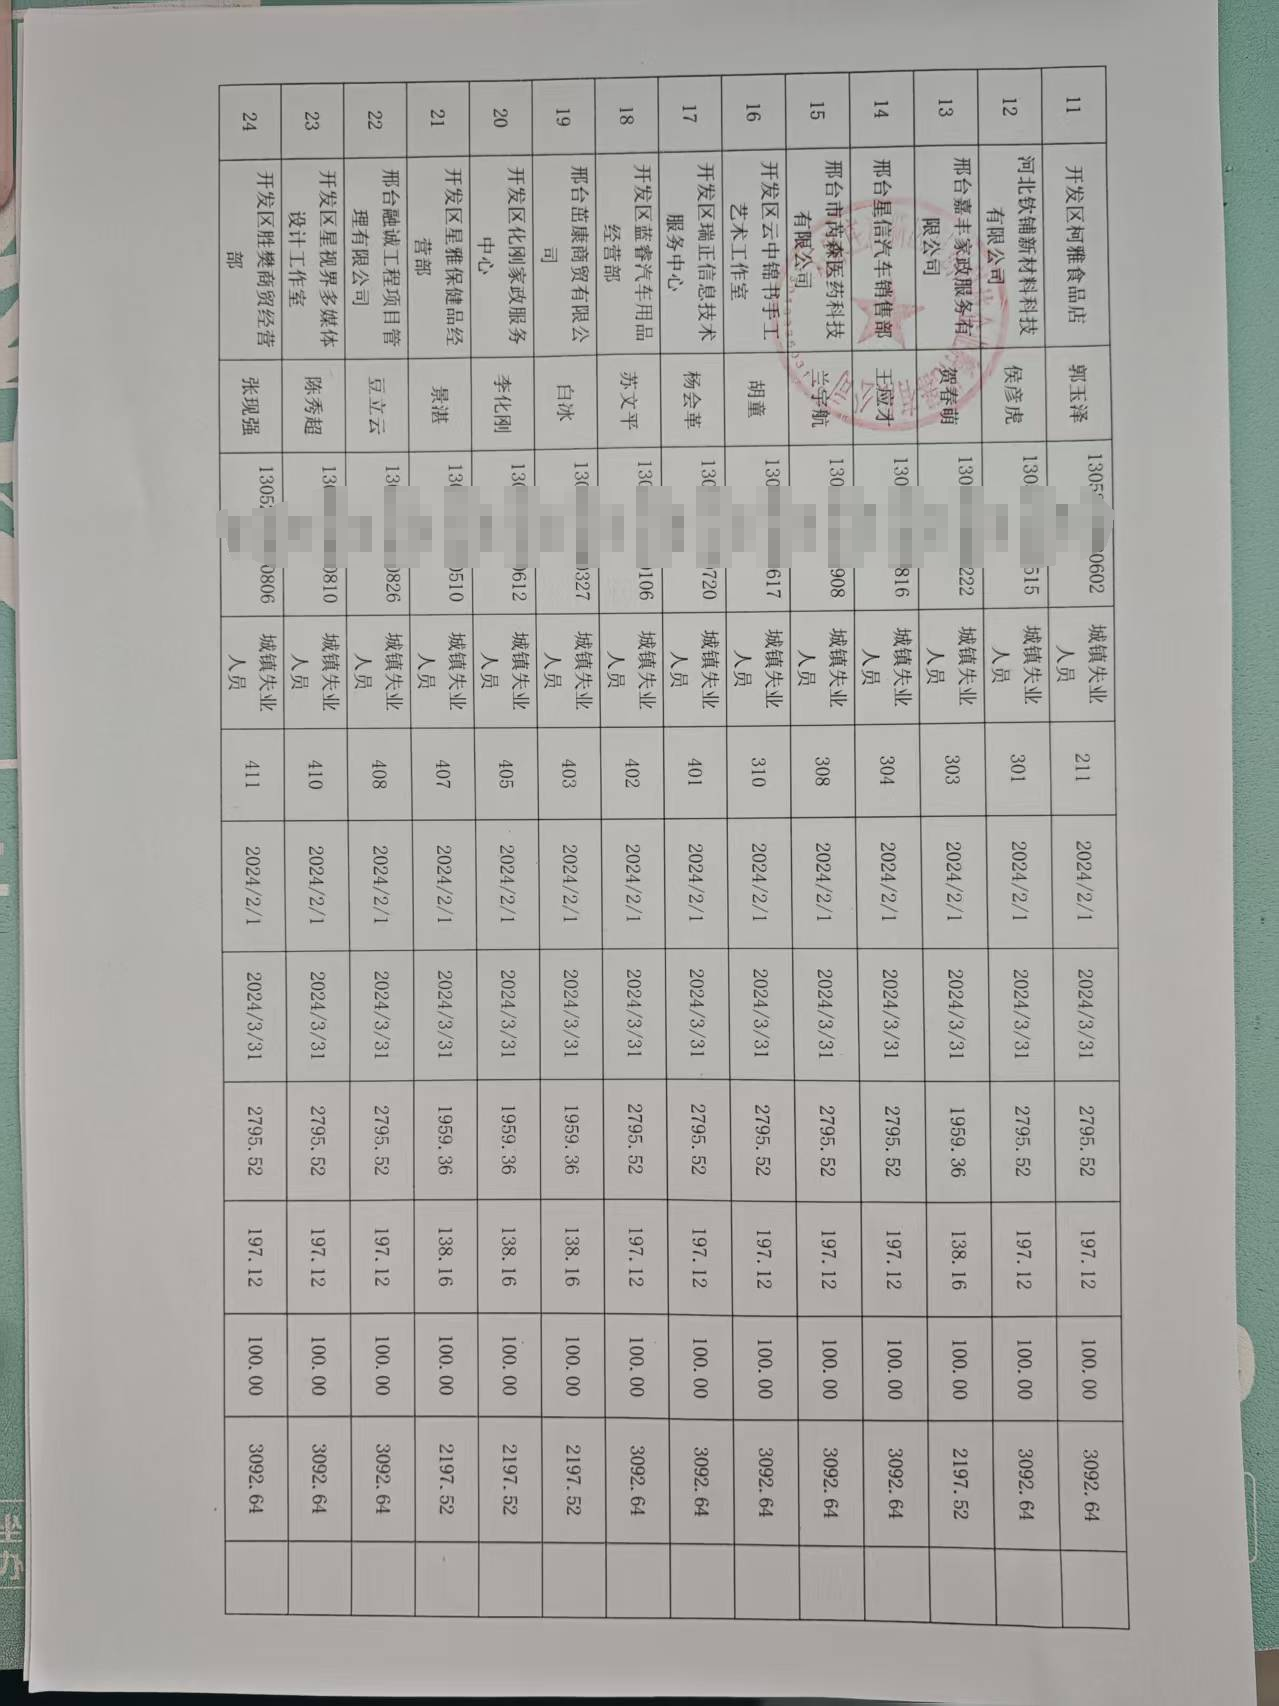 11 开发区柯雅食品店 郭玉泽 1305 0602 城镇失业人员 211 2024/2/1 2024/3/31 2795.52 197.12 100.00 3092.64
12 河北钦铺新材料科技有限公司 侯彦虎 130 515 城镇失业人员 301 2024/2/1 2024/3/31 2795.52 197.12 100.00 3092.64
13 邢台嘉丰家政服务有限公司 贺春萌 130 222 城镇失业人员 303 2024/2/1 2024/3/31 1959.36 138.16 100.00 2197.52
14 邢台星信汽车销售部 王应才 130 816 城镇失业人员 304 2024/2/1 2024/3/31 2795.52 197.12 100.00 3092.64
15 邢台市芮森医药科技有限公司 兰宇航 130 908 城镇失业人员 308 2024/2/1 2024/3/31 2795.52 197.12 100.00 3092.64
16 开发区云中锦书手工艺术工作室 胡童 130 617 城镇失业人员 310 2024/2/1 2024/3/31 2795.52 197.12 100.00 3092.64
17 开发区瑞正信息技术服务中心 杨会革 130 720 城镇失业人员 401 2024/2/1 2024/3/31 2795.52 197.12 100.00 3092.64
18 开发区蓝睿汽车用品经营部 苏文平 130 0106 城镇失业人员 402 2024/2/1 2024/3/31 2795.52 197.12 100.00 3092.64
19 邢台茁康商贸有限公司 白冰 130 0327 城镇失业人员 403 2024/2/1 2024/3/31 1959.36 138.16 100.00 2197.52
20 开发区化刚家政服务中心 李化刚 130 0612 城镇失业人员 405 2024/2/1 2024/3/31 1959.36 138.16 100.00 2197.52
21 开发区星雅保健品经营部 景湛 130 0510 城镇失业人员 407 2024/2/1 2024/3/31 1959.36 138.16 100.00 2197.52
22 邢台融诚工程项目管理有限公司 豆立云 130 0826 城镇失业人员 408 2024/2/1 2024/3/31 2795.52 197.12 100.00 3092.64
23 开发区星视界多媒体设计工作室 陈秀超 130 0810 城镇失业人员 410 2024/2/1 2024/3/31 2795.52 197.12 100.00 3092.64
24 开发区胜樊商贸经营部 张现强 1305 0806 城镇失业人员 411 2024/2/1 2024/3/31 2795.52 197.12 100.00 3092.64